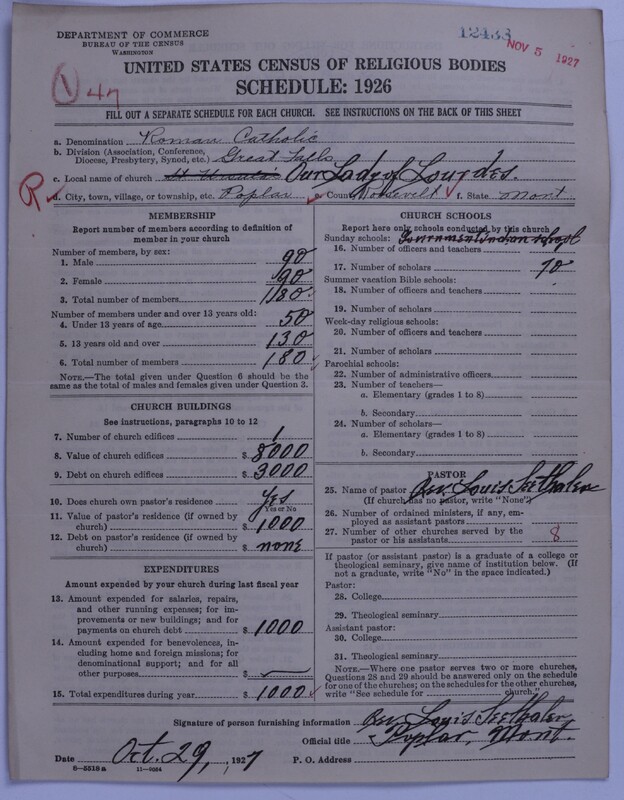 DEPARTMENT OF COMMERCE
BUREAU OF THE CENSUS
WASHINGTON
12433
NOV 5 1927
UNITED STATES CENSUS OF RELIGIOUS BODIES
SCHEDULE: 1926
1 47
FILL OUT A SEPARATE SCHEDULE FOR EACH CHURCH. SEE INSTRUCTIONS ON THE BACK OF THIS SHEET
a. Denomination Roman Catholic
b. Division (Association, Conference,
Diocese, Presbytery, Synod, etc.) Great Falls
c. Local name of church Our Lady of Lourdes.
R
d. City, town, village, or township, etc. Poplar e. County Roosevelt f. State Mont
MEMBERSHIP
Report number of members according to definition of
member in your church
Number of members, by sex:
1. Male 90
2. Female 90
3. Total number of members 180
Number of members under and over 13 years old:
4. Under 13 years of age 50
5. 13 years old and over 130
6. Total number of members 180
NOTE.—The total given under Question 6 should be the
same as the total of males and females given under Question 3.
CHURCH BUILDINGS
See instructions, paragraphs 10 to 12
7. Number of church edifices 1
8. Value of church edifices $ 8000
9. Debt on church edifices $ 3000
10. Does church own pastor's residence Yes
Yes or No
11. Value of pastor's residence (if owned by
church) $ 1000
12. Debt on pastor's residence (if owned by
church) $ none
EXPENDITURES
Amount expended by your church during last fiscal year
13. Amount expended for salaries, repairs,
and other running expenses; for im-
provements or new buildings; and for
payments on church debt $ 1000
14. Amount expended for benevolences, in-
cluding home and foreign missions; for
denominational support; and for all
other purposes $
15. Total expenditures during year $ 1000
CHURCH SCHOOLS
Report here only schools conducted by this church
Sunday schools: Government Indian school
16. Number of officers and teachers
17. Number of scholars 70
Summer vacation Bible schools:
18. Number of officers and teachers
19. Number of scholars
Week-day religious schools:
20. Number of officers and teachers
21. Number of scholars
Parochial schools:
22. Number of administrative officers
23. Number of teachers—
a. Elementary (grades 1 to 8)
b. Secondary
24. Number of scholars—
a. Elementary (grades 1 to 8)
b. Secondary
PASTOR
25. Name of pastor Rev. Louis Seethaler
(If church has no pastor, write "None")
26. Number of ordained ministers, if any, em-
ployed as assistant pastors
27. Number of other churches served by the
pastor or his assistants 8
If pastor (or assistant pastor) is a graduate of a college or
theological seminary, give name of institution below. (If
not a graduate, write "No" in the space indicated.)
Pastor:
28. College
29. Theological seminary
Assistant pastor:
30. College
31. Theological seminary
NOTE.—Where one pastor serves two or more churches,
Questions 28 and 29 should be answered only on the schedule
for one of the churches; on the schedules for the other churches,
write "See schedule for church."
Signature of person furnishing information Rev. Louis Seethaler
Official title Poplar, Mont.
Date Oct. 29, 1927 P. O. Address
8—5518a 11—9064